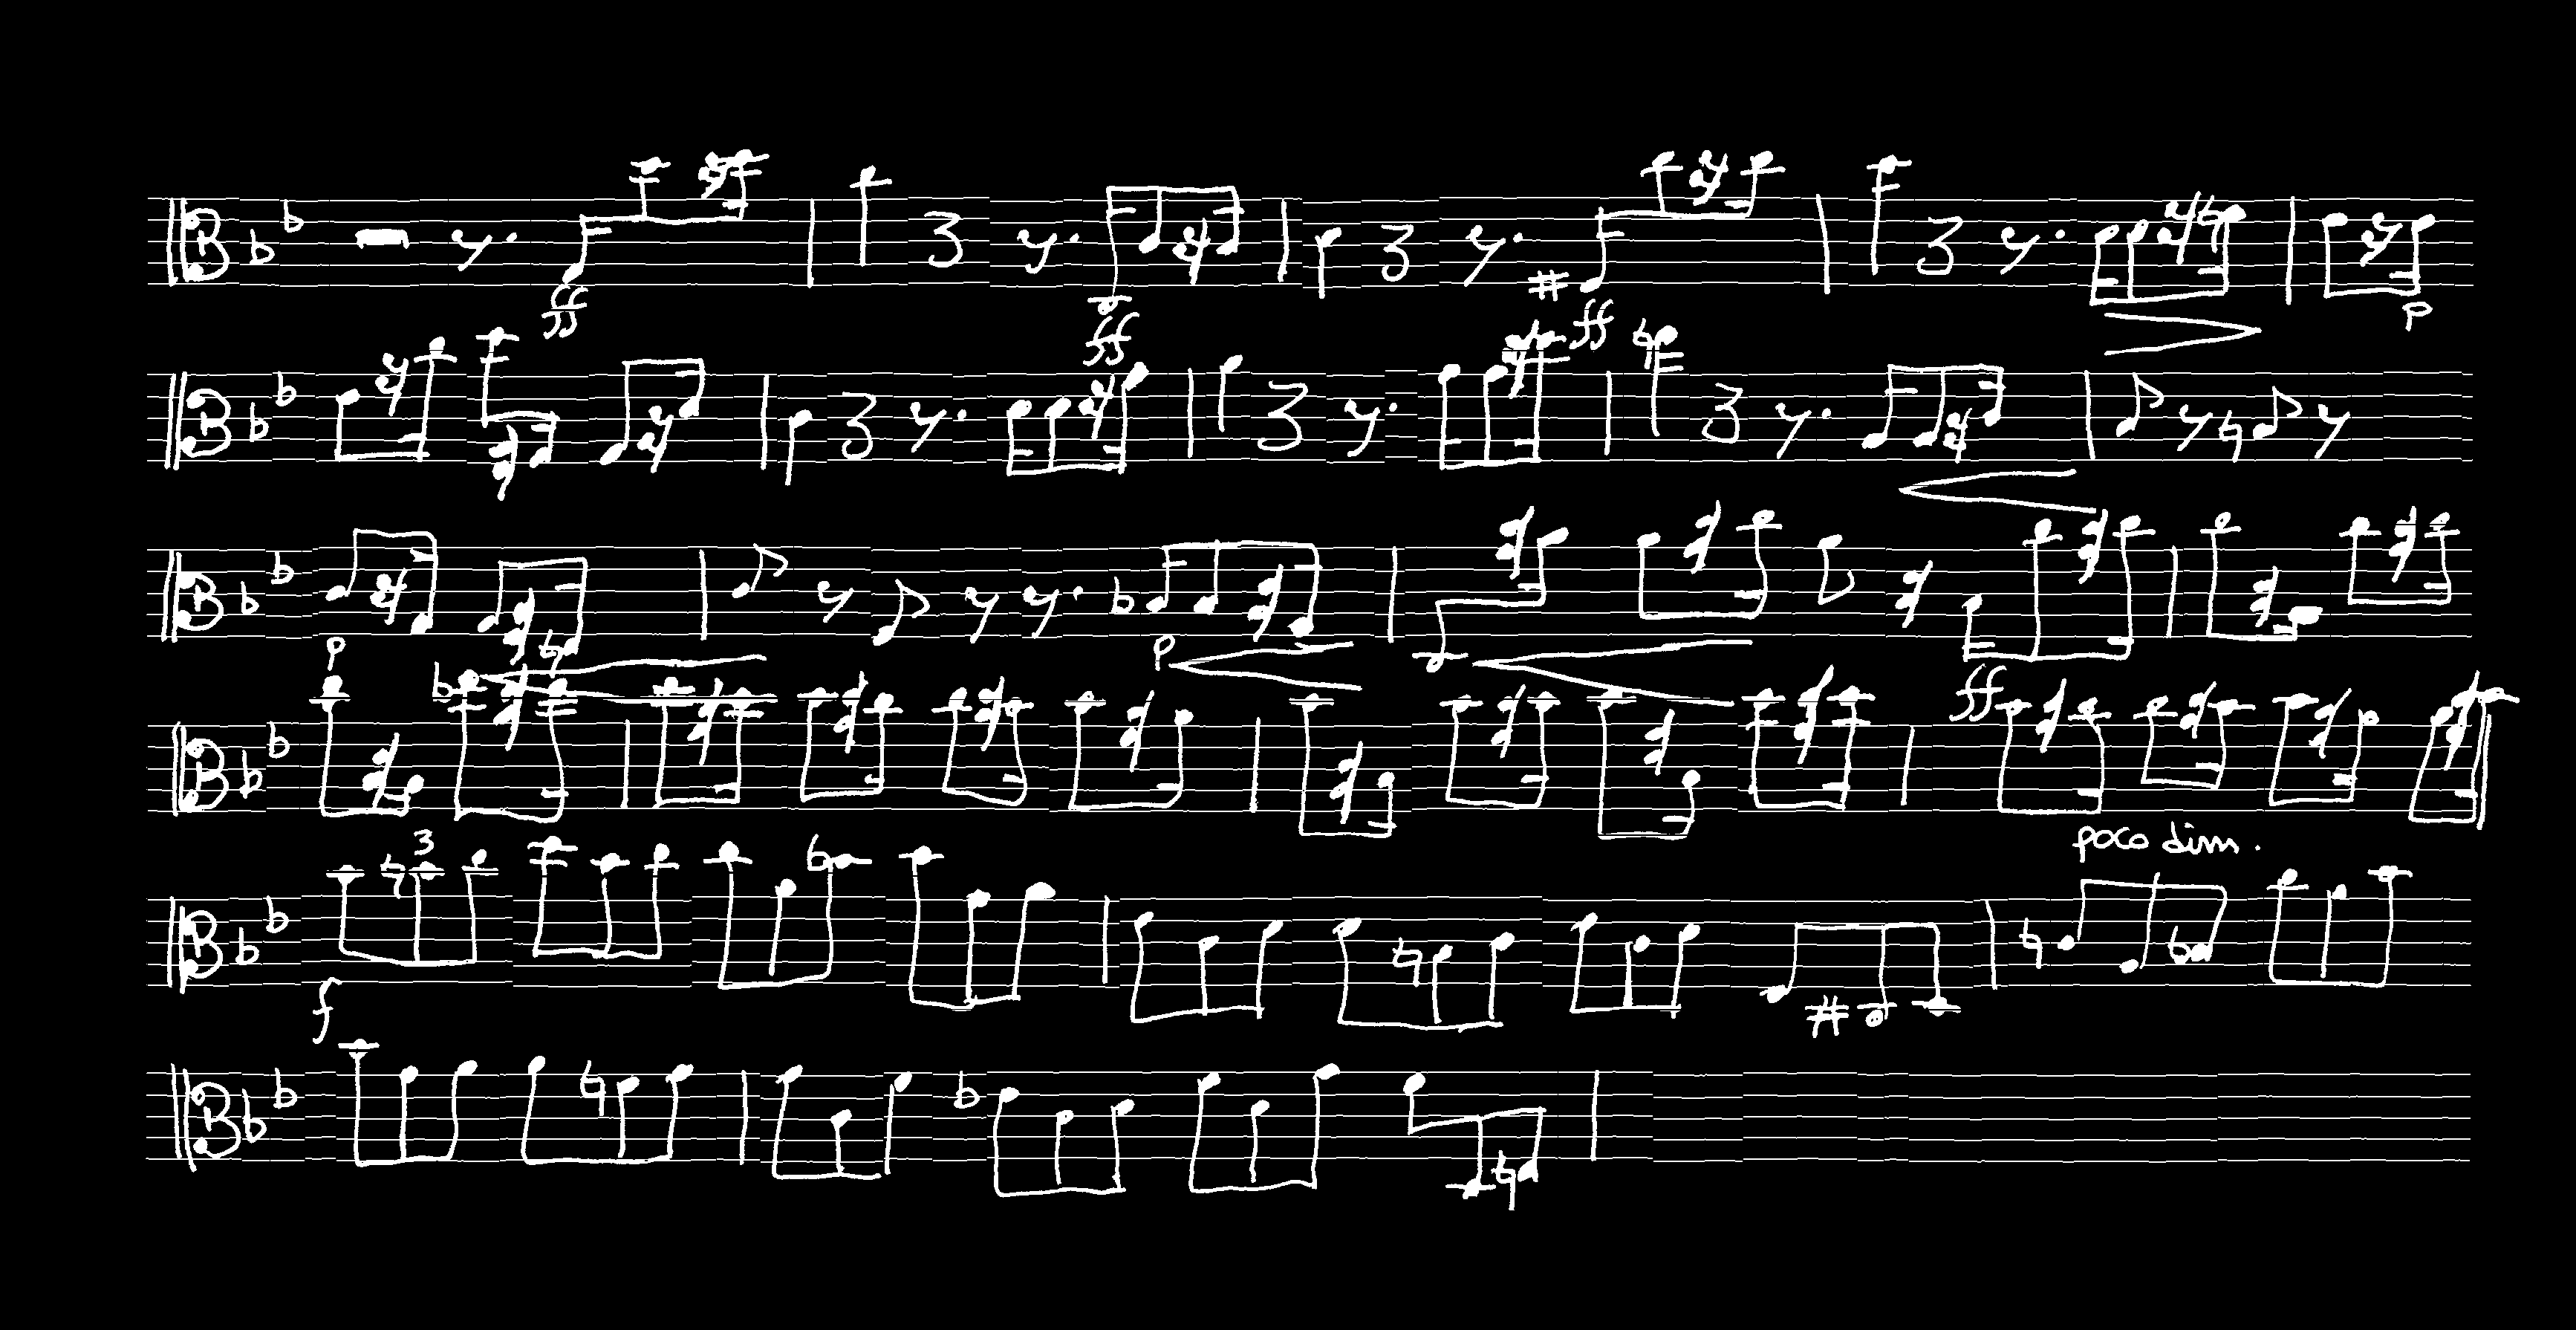 ff ff ff p
p p ff
3 poco dim.
f